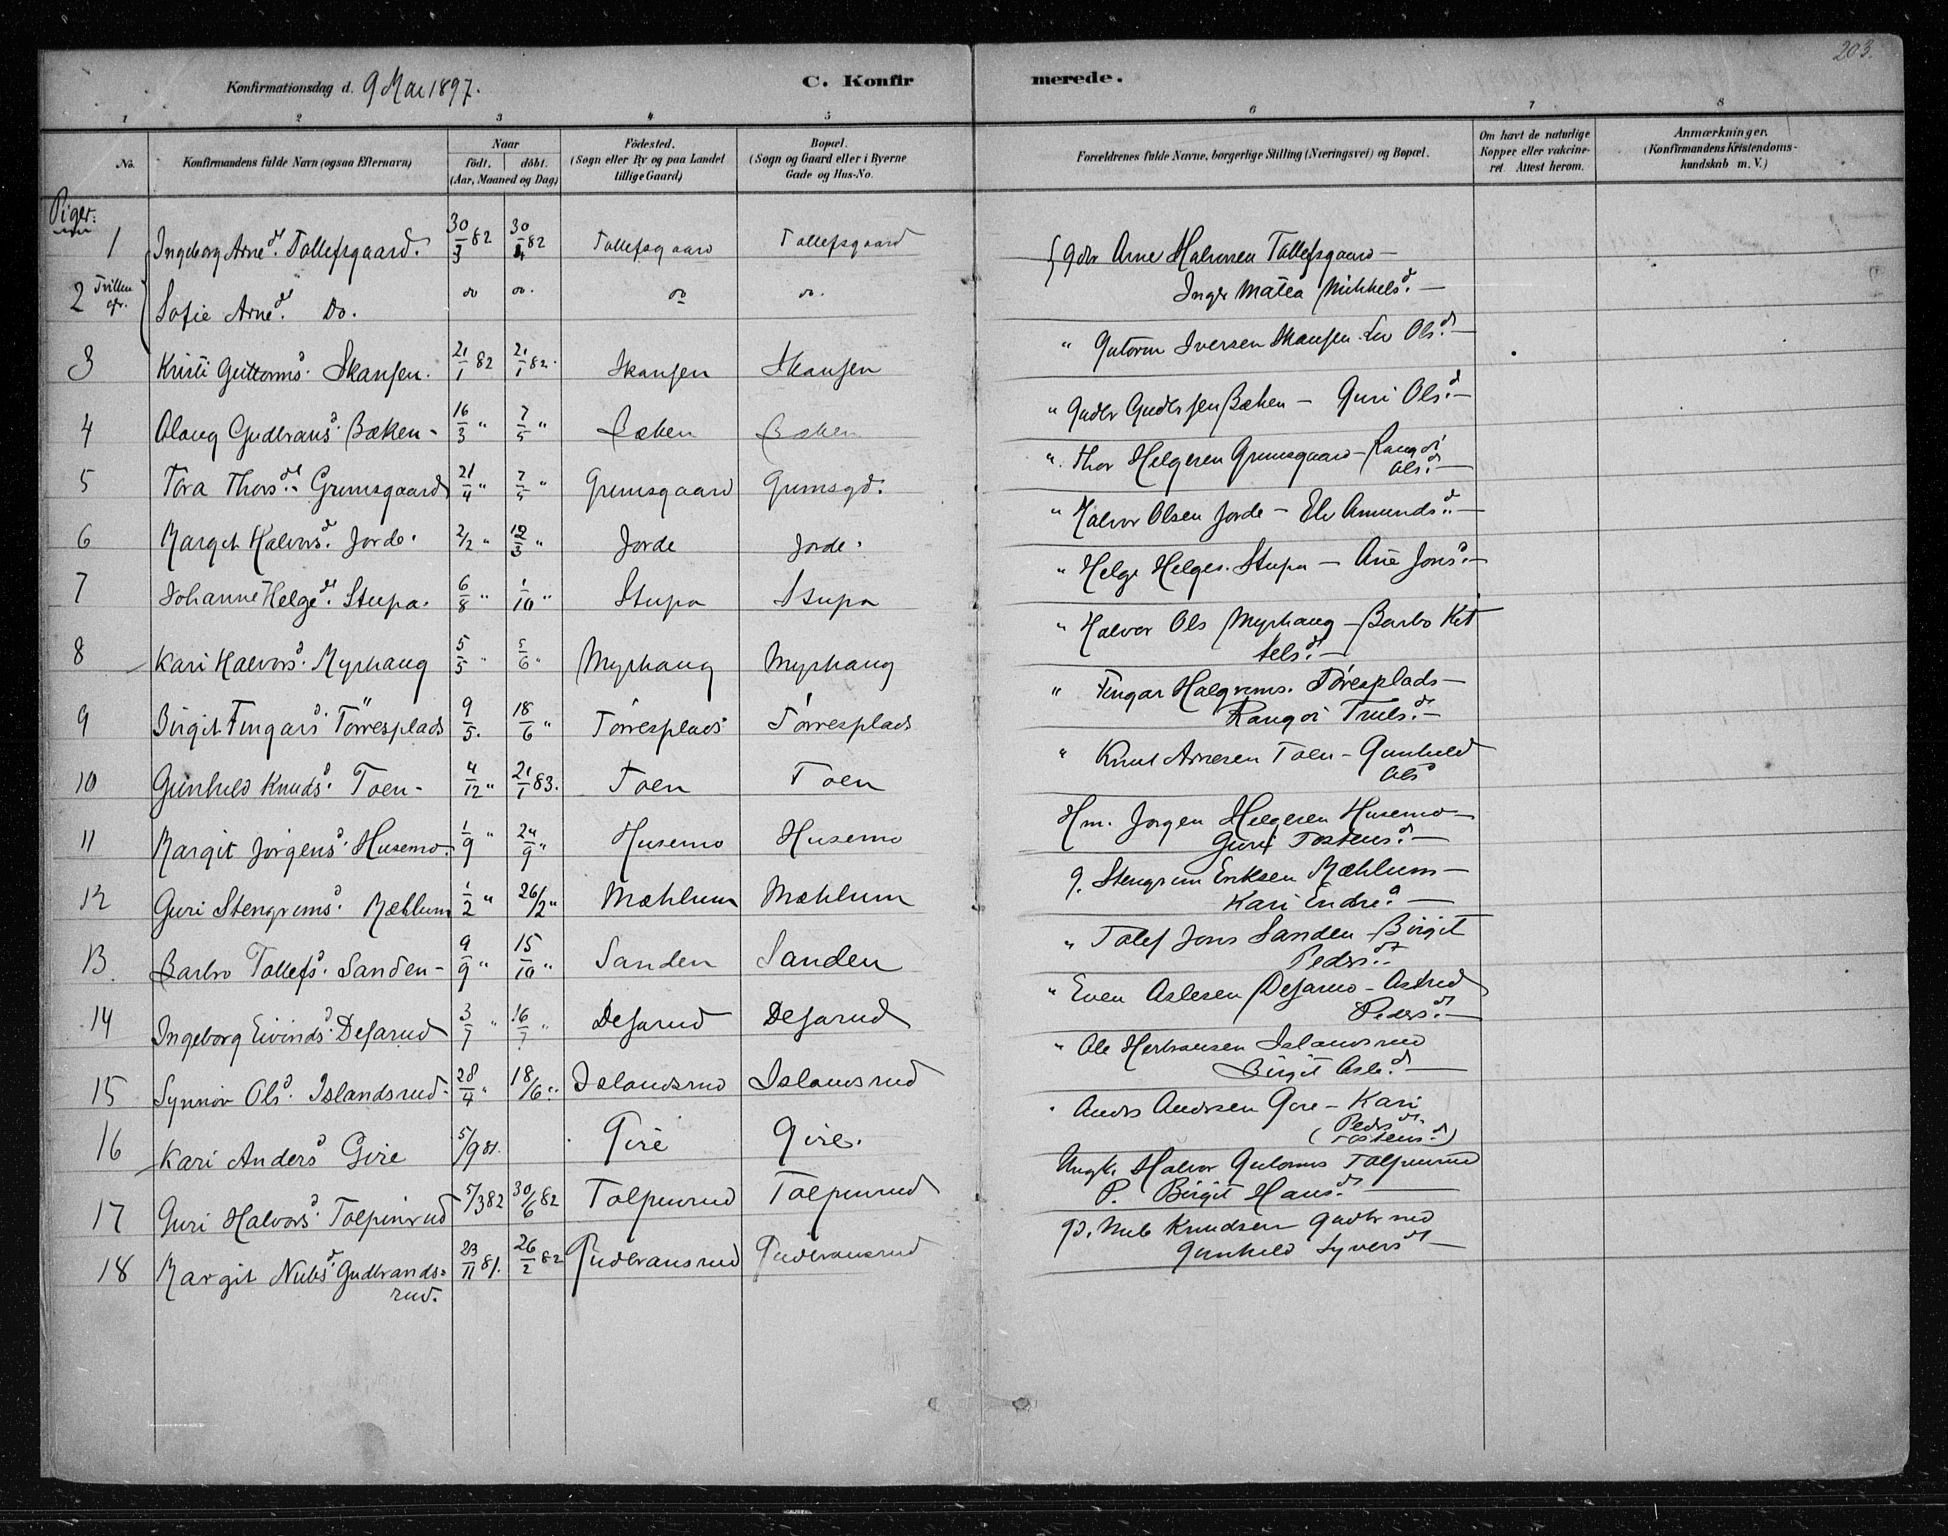 203.
Konfirmationsdag d. 9 Mai 1897.
C. Konfirmerede.
1 2 3 4 5 6 7 8
No.
Konfirmandens fulde Navn (ogsaa Efternavn)
Naar
födt. döbt.
(Aar, Maaned og Dag)
Födested.
(Sogn eller By og paa Landet
tillige Gaard)
Bopæl.
(Sogn og Gaard eller i Byerne
Gade og Hus-No.
Forældrenes fulde Navne, borgerlige Stilling (Næringsvei) og Bopæl.
Om havt de naturlige
Kopper eller vakcine-
ret Attest herom.
Anmærkninger.
(Konfirmandens Kristendoms-
kundskab m. V.)
Piger:
1 Ingeborg Arned. Tollefsgaard. 30/3 82 30/4 82 Tollefsgaard Tollefsgaard Gdbr Arne Halvorsen Tollefsgaard —
Inger Matea Mikkelsd. —
2 Tvillinger. Sofie Arned. Do. do do. do do.
3 Kristi Guttormsd. Skansen. 21/1 82 21/1 82. Skansen Skansen " Gutorm Iversen Skansen. Liv Olsd. —
4 Olaug Gudbransd. Bæken - 16/3 " 7/5 " Bæken Bæken " Gudbr Gudbrsen Bæken — Guri Olsd. —
5 Tora Thorsd. Grimsgaard 21/4 " 7/5 " Grimsgaard Grimsgd. " Thor Helgesen Grimsgaard — Rangdi
Olsd. —
6 Margit Halvorsd. Jorde. 2/2 " 12/3 " Jorde Jorde. " Halvor Olsen Jorde — Eli Amundsd. —
7 Johanne Helged. Stupa. 6/8 " 1/10 " Stupa Stupa " Helge Helges. Stupa — Ane Jonsd. —
8 Kari Halvorsd. Myrhaug 5/5 " 5/6 " Myrhaug Myrhaug " Halvor Ols Myrhaug — Barbo Kit
telsd. —
9 Birgit Fingarsd. Törresplads 9/5. 18/6 " Törresplads Törresplads " Fingar Halgrims. Törresplads —
Rangdi Truelsd. —
10 Gunhild Knudsd. Toen - 4/12 " 21/1 83. Toen Toen " Knut Arnesen Toen — Gunhild
Olsd
11 Margit Jörgensd. Husemo. 1/9 " 24/9 " Husemo Husemo Hm. Jorgen Helgesen Husemo —
Guri Tostensd. —
12 Guri Stengrimsd. Mæhlum 1/2 " 26/2 " Mæhlum Mæhlum G. Stengrim Eriksen Mæhlum —
Kari Endred. —
13 Barbro Tollefsd. Sanden - 9/9 " 15/10 " Sanden Sanden " Tolef Jons Sanden — Birgit
Pedersd.
14 Ingeborg Eivindsd. Desarud 3/7 " 16/7 " Desarud Desarud " Even Aslesen Desarud — Astrid
Pedersd. —
15 Synnöv Olsd. Islandsrud - 28/4 " 18/6 " Islandsrud Islandsrud " Ole Herbransen Islandsrud
Birgit Asled. —
16 Kari Andersd Gire 5/9 81. Gire Gire. " Anders Andersen Gire — Kari
Pedersd.
(Tostensd.)
17 Guri Halvorsd. Tolpinrud 5/3 82 30/6 82 Tolpinrud Tolpinrud Ungk. Halvor Gutorms Tolpinrud
P. Birgit Hansd. —
18 Margit Nubsd. Gudbrands- 23/11 81. 26/2 82 Gudbransrud Gudbransrud Knudsen Gudbr rud
rud. Gunhild Syversd —